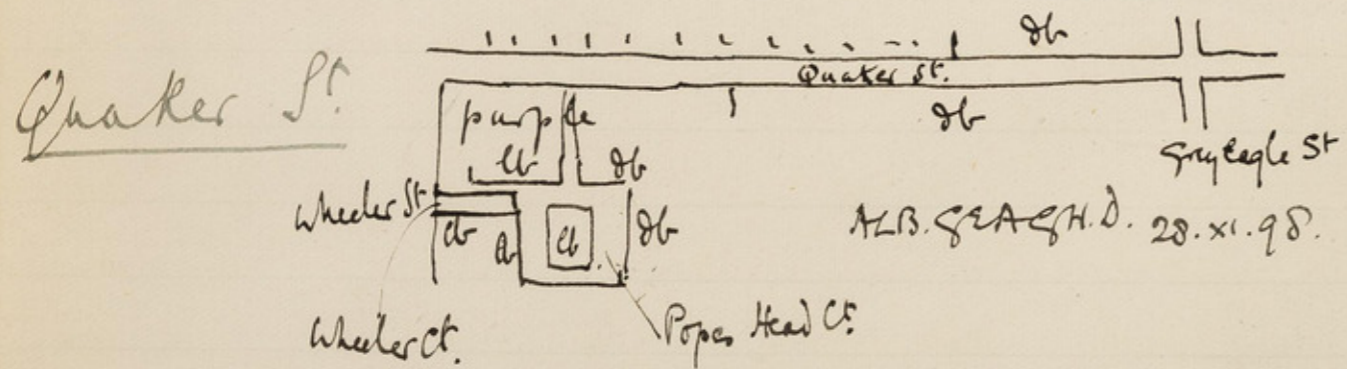 Quaker St.
db
Quaker St.
db
purple
lb
db
Greyeagle St
Wheeler St
db
lb
db
28.XI.98.
Wheeler Ct.
Popes Head Ct.